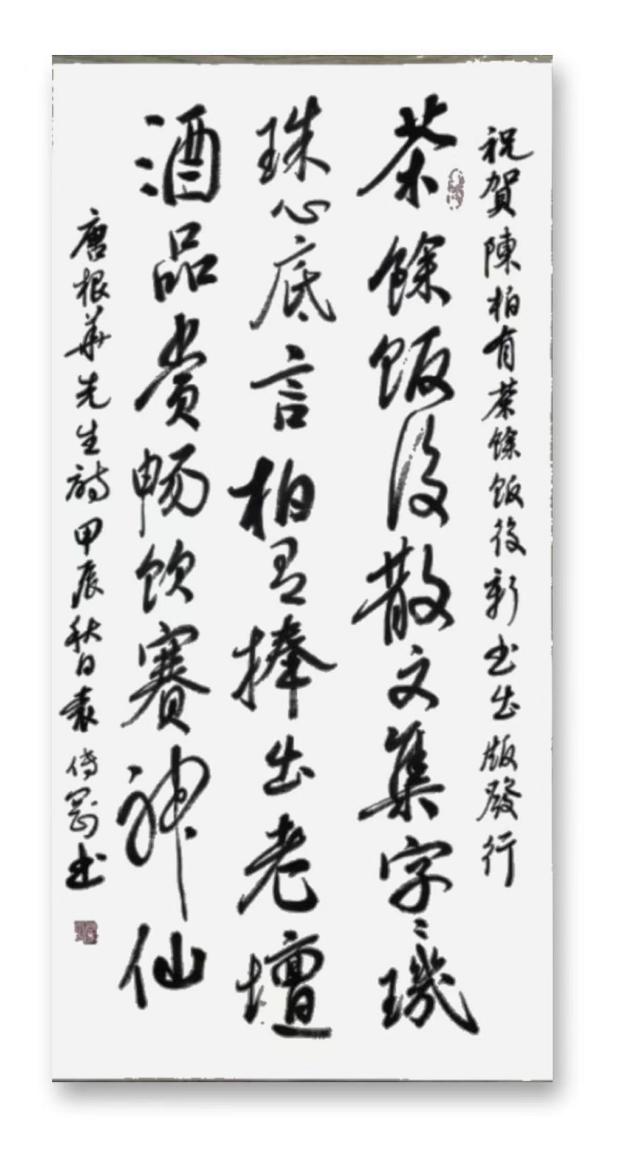 祝賀陳柏有茶餘飯後新书出版發行
茶餘飯後散文集字〻璣
珠心底言柏有捧出老壇
酒品赏畅饮賽神仙
唐根華先生詩甲辰秋日袁傳罡书